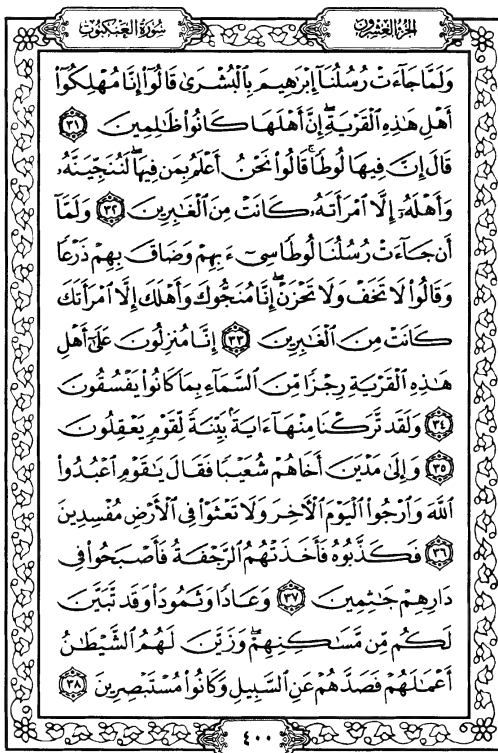 سُورَةُ العَنكبُوتِ
الجُزْءُ العِشْرُونَ
وَلَمَّا جَآءَتْ رُسُلُنَآ إِبْرَٰهِيمَ بِٱلْبُشْرَىٰ قَالُوٓا۟ إِنَّا مُهْلِكُوٓا۟
أَهْلِ هَٰذِهِ ٱلْقَرْيَةِ ۖ إِنَّ أَهْلَهَا كَانُوا۟ ظَٰلِمِينَ ٣١
قَالَ إِنَّ فِيهَا لُوطًا ۚ قَالُوا۟ نَحْنُ أَعْلَمُ بِمَن فِيهَا ۖ لَنُنَجِّيَنَّهُۥ
وَأَهْلَهُۥٓ إِلَّا ٱمْرَأَتَهُۥ كَانَتْ مِنَ ٱلْغَٰبِرِينَ ٣٢ وَلَمَّآ
أَن جَآءَتْ رُسُلُنَا لُوطًا سِىٓءَ بِهِمْ وَضَاقَ بِهِمْ ذَرْعًا
وَقَالُوا۟ لَا تَخَفْ وَلَا تَحْزَنْ ۖ إِنَّا مُنَجُّوكَ وَأَهْلَكَ إِلَّا ٱمْرَأَتَكَ
كَانَتْ مِنَ ٱلْغَٰبِرِينَ ٣٣ إِنَّا مُنزِلُونَ عَلَىٰٓ أَهْلِ
هَٰذِهِ ٱلْقَرْيَةِ رِجْزًا مِّنَ ٱلسَّمَآءِ بِمَا كَانُوا۟ يَفْسُقُونَ
٣٤ وَلَقَد تَّرَكْنَا مِنْهَآ ءَايَةًۢ بَيِّنَةً لِّقَوْمٍ يَعْقِلُونَ
٣٥ وَإِلَىٰ مَدْيَنَ أَخَاهُمْ شُعَيْبًا فَقَالَ يَٰقَوْمِ ٱعْبُدُوا۟
ٱللَّهَ وَٱرْجُوا۟ ٱلْيَوْمَ ٱلْءَاخِرَ وَلَا تَعْثَوْا۟ فِى ٱلْأَرْضِ مُفْسِدِينَ
٣٦ فَكَذَّبُوهُ فَأَخَذَتْهُمُ ٱلرَّجْفَةُ فَأَصْبَحُوا۟ فِى
دَارِهِمْ جَٰثِمِينَ ٣٧ وَعَادًا وَثَمُودَا۟ وَقَد تَّبَيَّنَ
لَكُم مِّن مَّسَٰكِنِهِمْ ۖ وَزَيَّنَ لَهُمُ ٱلشَّيْطَٰنُ
أَعْمَٰلَهُمْ فَصَدَّهُمْ عَنِ ٱلسَّبِيلِ وَكَانُوا۟ مُسْتَبْصِرِينَ ٣٨
٤٠٠